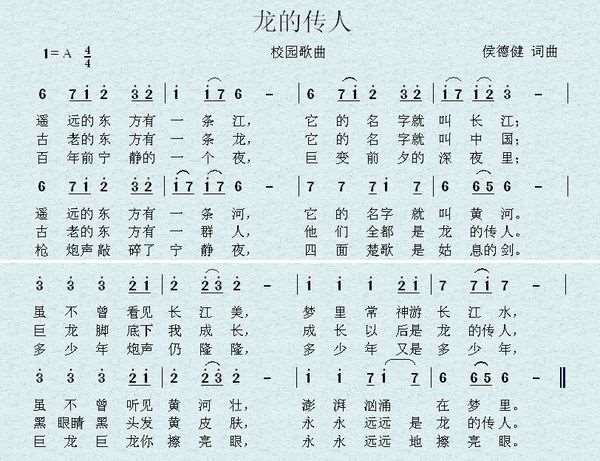 龙的传人
1=A 4/4 校园歌曲 侯德健 词曲
6 71 2 32 | 1 17 6 - | 6 71 2 32 | 17 12 3 - |
遥 远的 东 方有 一 条 江， 它 的 名 字就 叫 长 江；
古 老的 东 方有 一 条 龙， 它 的 名 字就 叫 中 国；
百 年前 宁 静的 一 个 夜， 巨 变 前 夕的 深 夜 里；
6 71 2 32 | 17 17 6 - | 7 7 71 7 | 6 65 6 - |
遥 远的 东 方有 一 条 河， 它 的 名字 就 叫 黄 河。
古 老的 东 方有 一 群 人， 他 们 全都 是 龙 的传 人。
枪 炮声 敲 碎了 宁 静 夜， 四 面 楚歌 是 姑 息的 剑。
3 3 3 21 | 2 23 2 - | 1 1 1 21 | 7 71 7 - |
虽 不 曾 看见 长 江 美， 梦 里 常 神游 长 江 水，
巨 龙 脚 底下 我 成 长， 成 长 以 后是 龙 的传 人，
多 少 年 炮声 仍 隆 隆， 多 少 年 又是 多 少 年，
3 3 3 21 | 2 23 2 - | 1 1 71 1 7 | 6 65 6 - ‖
虽 不 曾 听见 黄 河 壮， 澎 湃 汹涌 在 梦 里。
黑 眼睛 黑 头发 黄 皮 肤， 永 永 远远 是 龙 的传 人。
巨 龙 巨 龙你 擦 亮 眼， 永 永 远远 地 擦 亮 眼。